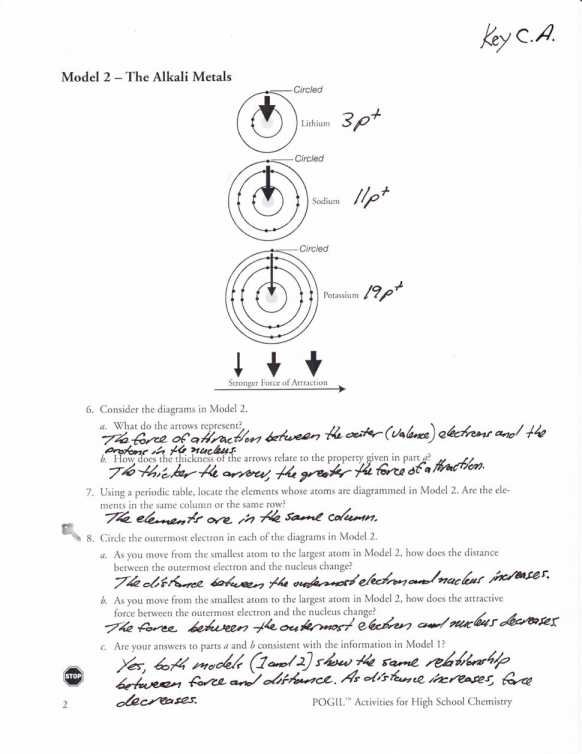 Key C.A.
Model 2 – The Alkali Metals
Circled
Lithium 3p+
Circled
Sodium 11p+
Circled
Potassium 19p+
Stronger Force of Attraction
6. Consider the diagrams in Model 2.
a. What do the arrows represent?
The force of attraction between the outer (valence) electrons and the
protons in the nucleus.
b. How does the thickness of the arrows relate to the property given in part a?
The thicker the arrow, the greater the force of attraction.
7. Using a periodic table, locate the elements whose atoms are diagrammed in Model 2. Are the ele-
ments in the same column or the same row?
The elements are in the same column.
8. Circle the outermost electron in each of the diagrams in Model 2.
a. As you move from the smallest atom to the largest atom in Model 2, how does the distance
between the outermost electron and the nucleus change?
The distance between the outermost electron and nucleus increases.
b. As you move from the smallest atom to the largest atom in Model 2, how does the attractive
force between the outermost electron and the nucleus change?
The force between the outermost electron and nucleus decreases
c. Are your answers to parts a and b consistent with the information in Model 1?
Yes, both models (1 and 2) show the same relationship
between force and distance. As distance increases, force
decreases.
STOP
2 POGIL™ Activities for High School Chemistry